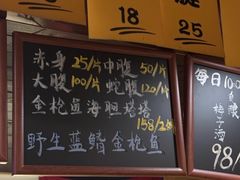 18
25
赤身 25/片 中腹 50/片
大腹 100/片 蛇腹 120/片
金枪鱼海胆塔塔
158/2個
野生蓝鳍金枪鱼
每日10:0
梅子酒
98/